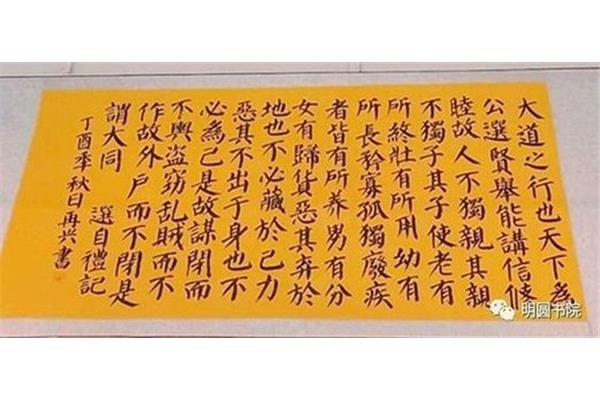 大道之行也天下為
公選賢舉能講信修
睦故人不獨親其親
不獨子其子使老有
所終壯有所用幼有
所長矜寡孤獨廢疾
者皆有所养男有分
女有歸貨惡其弃於
地也不必藏於己力
惡其不出于身也不
必為己是故謀閉而
不興盗窃乱賊而不
作故外户而不閉是
謂大同 選自禮記
丁酉秊秋日再兴書
明圆书院